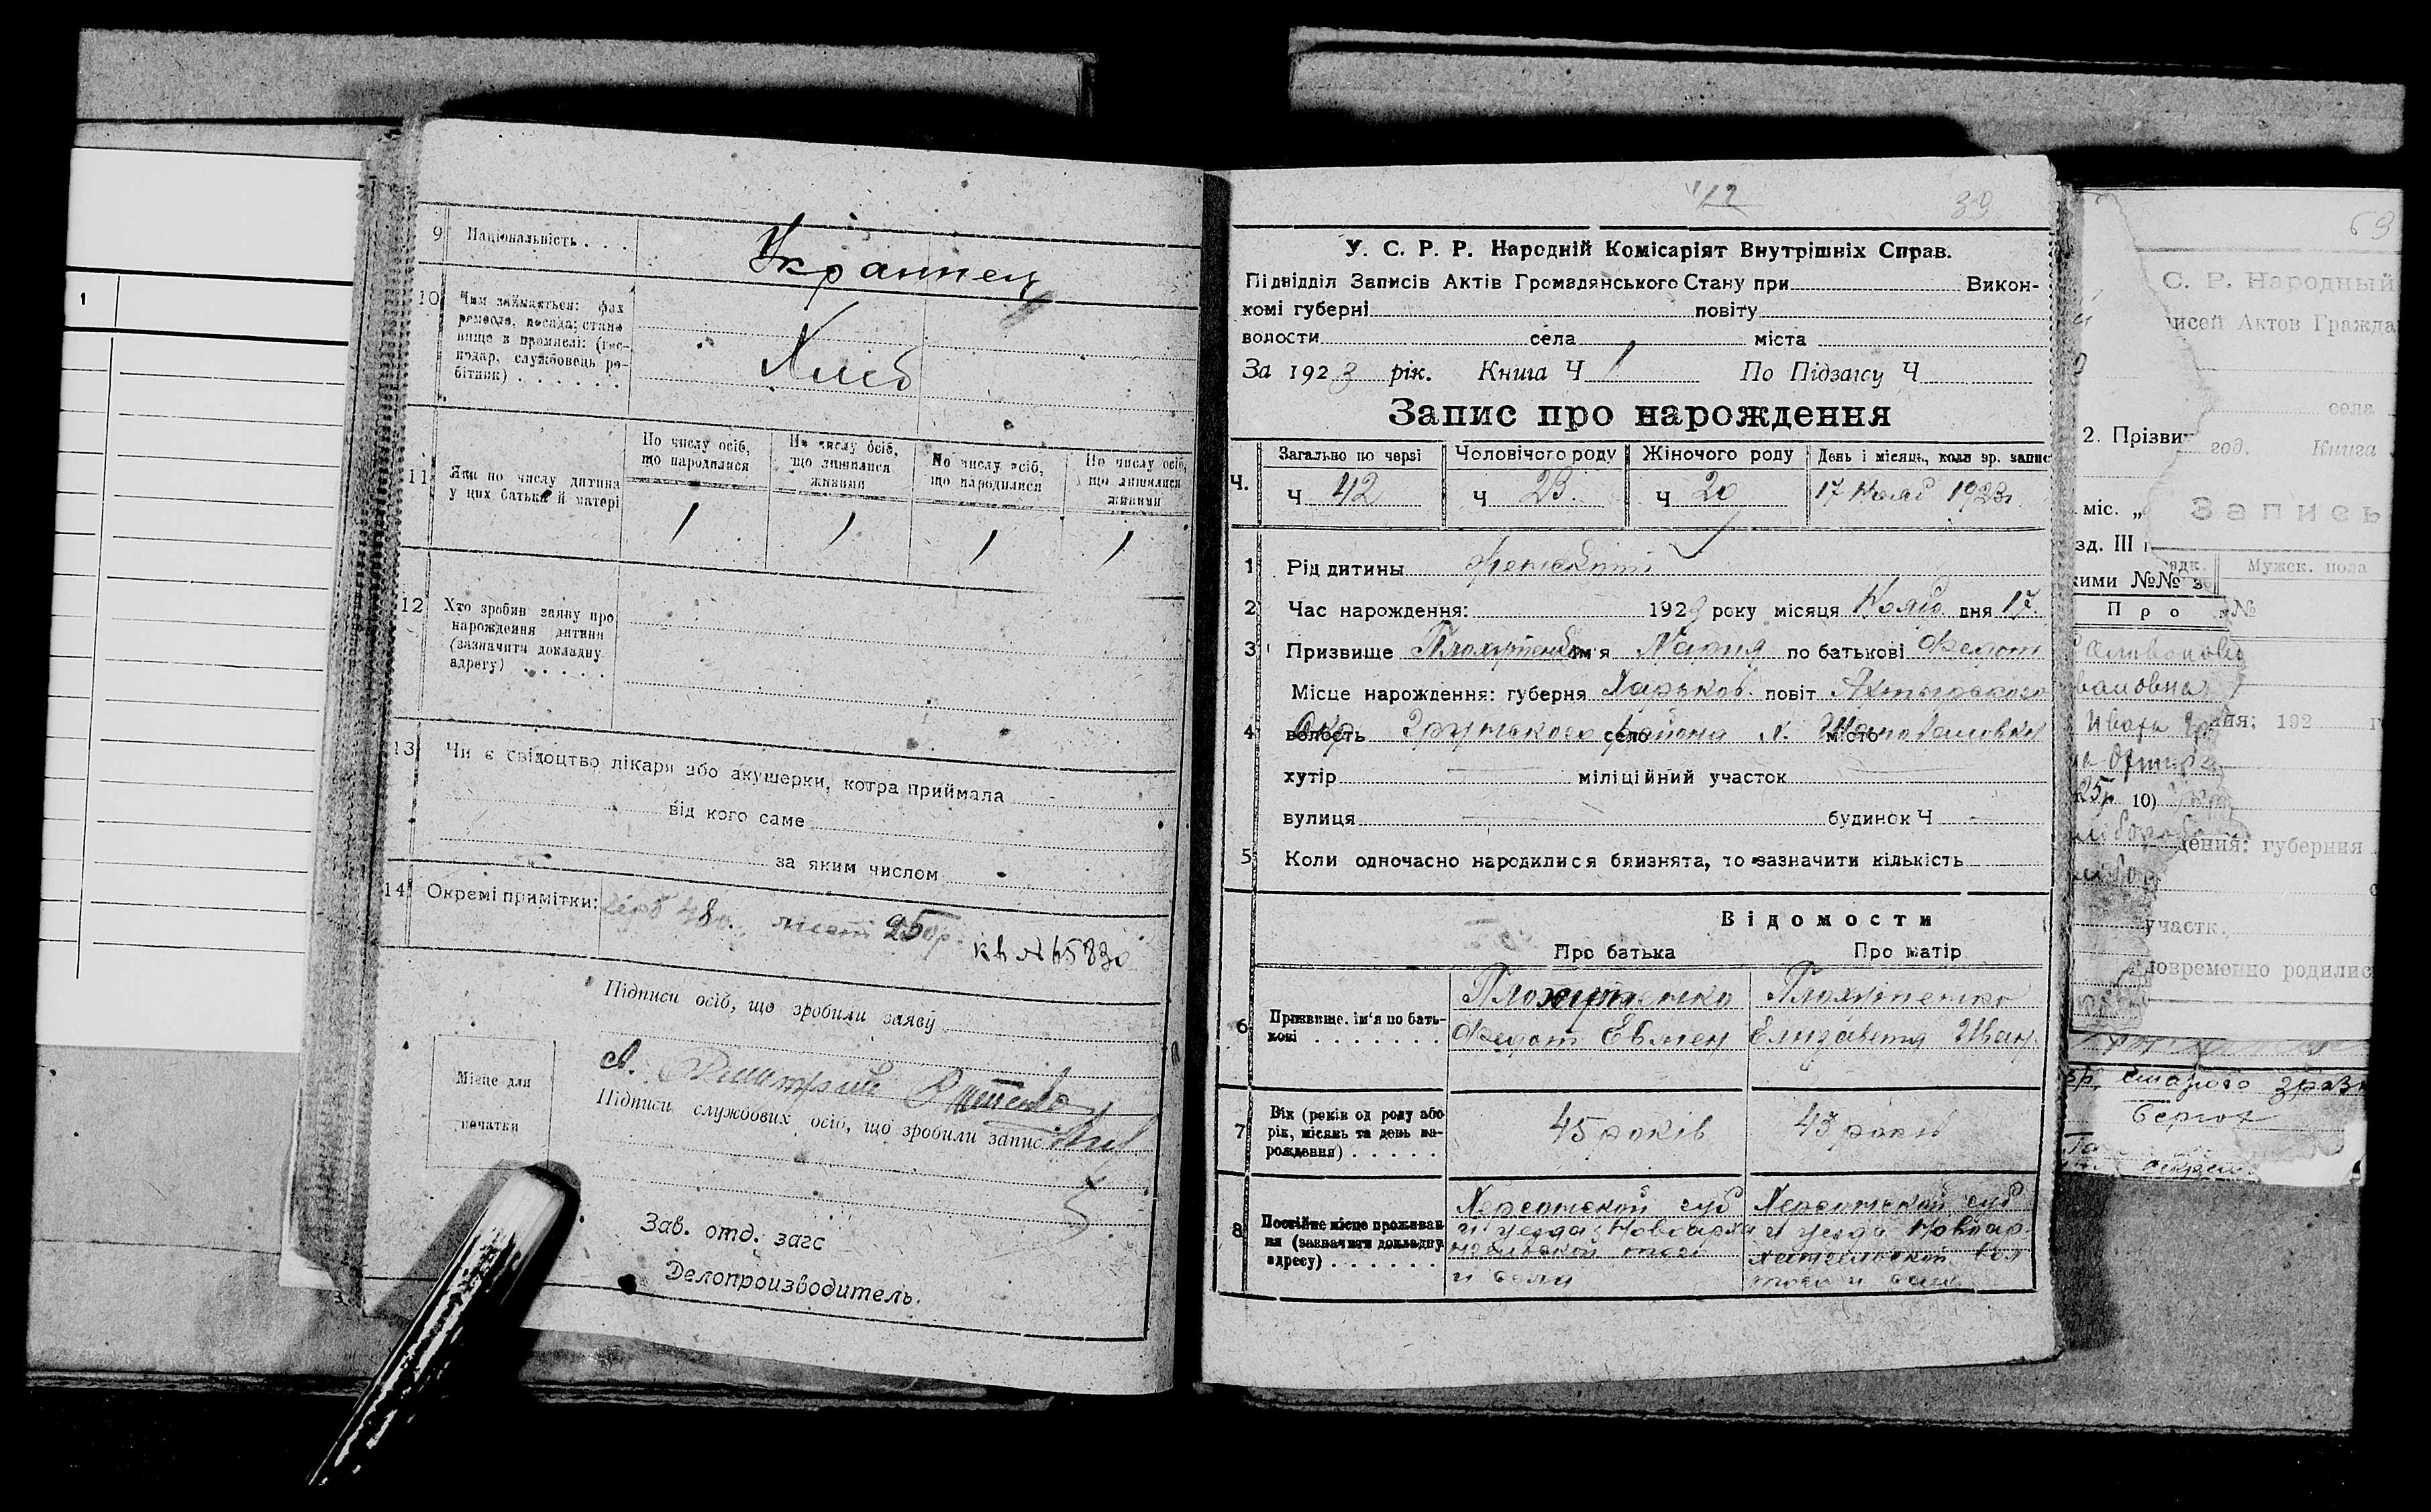 1
9 Національність . . . Украинец
10 Чим займається: фах
ремесло, посада; стано
вище в промислі: (гос-
подар, службовець ро-
бітник) . . . . . . Хлеб
11 Яка по числу дитина
у цих батька й матері
По числу осіб,
що народилися
По числу осіб,
що лишилися
живими
По числу осіб,
що народилися
По числу осіб,
що лишилися
живими
1 1 1 1
12 Хто зробив заяву про
нарождення дитини
(зазначити докладну
адресу) . . . . .
13 Чи є свідоцтво лікаря або акушерки, котра приймала
від кого саме
за яким числом
14 Окремі примітки: герб 48 лист 25 кв № 65830
Підписи осіб, що зробили заяву
Місце для
печатки
Дмитрий
Підписи службових осіб, що зробили запис
Зав. отд. загс
Делопроизводитель.
42 39
У. С. Р. Р. Народній Комісаріят Внутрішніх Справ.
Підвідділ Записів Актів Громадянського Стану при Викон-
комі губерні повіту
волости села міста
За 1923 рік. Книга Ч 1 По Підзагсу Ч
Запис про нарождення
Ч.
Загально по черзі Чоловічого роду Жіночого роду День і місяць, коли зр. запис
Ч 42 Ч 23. Ч 20 17 Нояб 1923г
1 Рід дитини
2 Час нарождення: 1923 року місяця Нояб. дня 17.
3 Призвище Плохутенко ім'я Мария по батькові Федот
4 Місце нарождення: губерня Харьков. повіт Ахтырского
волость Окр Грунського село района місто х. Шаповаловки
хутір міліційний участок
вулиця будинок Ч
5 Коли одночасно народилися близнята, то зазначити кількість
Відомости
Про батька Про матір
6 Призвище, ім'я по бать-
кові . . . . . . .
Плохутенко
Федот Евмен
Плохутенко
Елизавета Иван.
7 Вік (років од роду або
рік, місяць та день на-
рождення) . . . . .
45 років 43 роки
8 Постійне місце проживан
ня (зазначити докладну
адресу) . . . . . .
Херсонской губ
и уезда Новоарха
нгельской тоей
и села
Херсонской губ
и уезда Новоар
хангельской вол
тоей и села
63
С. Р. Народный
исей Актов Гражда
села
2. Прізви
год. Книга
міс. „
Запись
зд. III
кими №№ з
Мужск. пола
Про
№
ния: 192
10)
дения: губерния
участк.
новременно родилис
старого